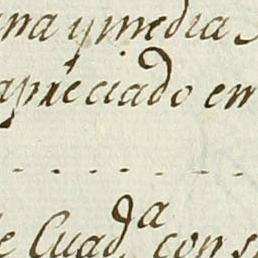 una y media
apreciado en
. . . . . . . .
de Cuad.da con s